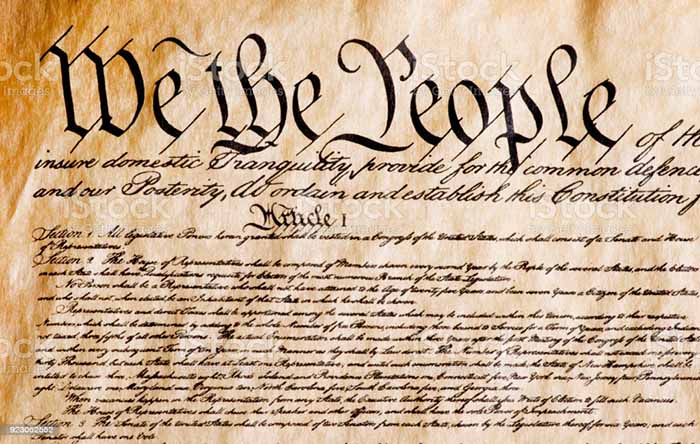 We the People of the
insure domestic Tranquility, provide for the common defence
and our Posterity, do ordain and establish this Constitution f
Article I
Section 1 All legislative Powers herein granted shall be vested in a Congress of the United States, which shall consist of a Senate and House
of Representatives.
Section 2 The House of Representatives shall be composed of Members chosen every second Year by the People of the several States, and the
in each State shall have Qualifications requisite for Electors of the most numerous Branch of the State Legislature.
No Person shall be a Representative who shall not have attained to the Age of twenty five Years and been seven Years a Citizen of the United States
and who shall not, when elected, be an Inhabitant of that State in which he shall be chosen.
Representatives and direct Taxes shall be apportioned among the several States which may be included within this Union, according to their respective
Numbers, which shall be determined by adding to the whole Number of free Persons, including those bound to Service for a Term of Years, and excluding Indians
not taxed, three fifths of all other Persons. The actual Enumeration shall be made within three Years after the first Meeting of the Congress of the United States
within every subsequent Term of ten Years, in such Manner as they shall by Law direct. The Number of Representatives shall not exceed one for every
thirty Thousand, but each State shall have at Least one Representative; and until such enumeration shall be made, the State of New Hampshire shall be
eight, Delaware one, Maryland six, Virginia ten, North Carolina five, South Carolina five, and Georgia three.
When vacancies happen in the Representation from any State, the Executive Authority thereof shall issue Writs of Election to fill such Vacancies.
The House of Representatives shall chuse their Speaker and other Officers; and shall have the sole Power of Impeachment.
Section 3 The Senate of the United States shall be composed of two Senators from each State, chosen by the Legislature thereof for six Years; and each
Senator shall have one Vote.
iStock
923052552